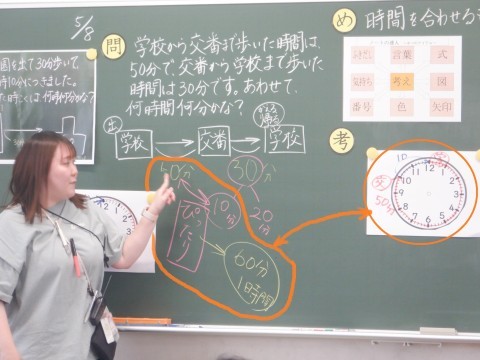 5/8
を出て30分歩いて、
時10分につきました。
め 時間を合わせる
問 学校から交番まで歩いた時間は、
50分で、交番から学校まで歩いた
時間は30分です。あわせて、
何時間何分かな？
言葉
式
気持ち
考え
図
番号
色
矢印
出
学校
交番
学校
考
30分
10分
20分
ぴったり
60分
1時間
10
50分